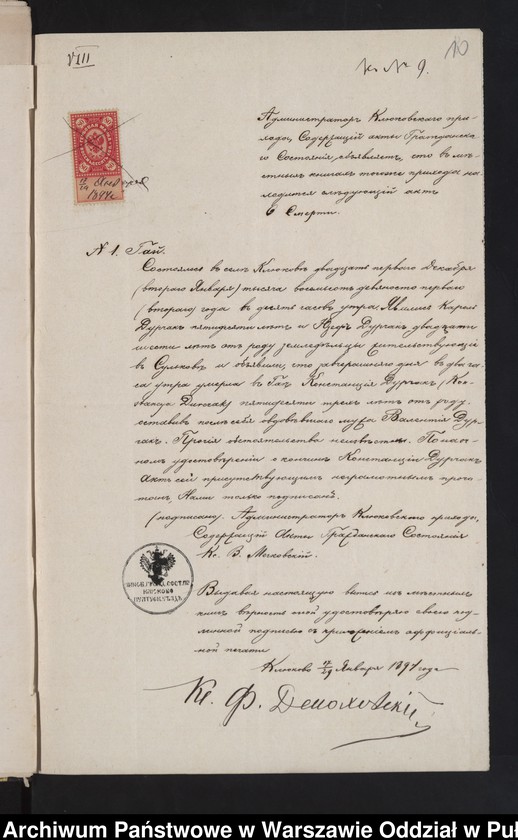 VIII
10
к № 9.
Администраторъ Клюковскаго при-
хода, Содержащій акты Гражданска-
го Состоянія, объявляетъ, что въ мѣ-
стныхъ книгахъ тогоже прихода на-
ходится слѣдующій актъ
о Смерти.
17/29 Января
1894 г.
№ 1. Гай.
Состоялось въ селѣ Клюковѣ двадцать перваго Декабря
(втораго Января) тысяча восемьсотъ девяносто перваго
(втораго) года въ десять часовъ утра. Явились Кароль
Дургакъ пятидесяти лѣтъ и Юзефъ Дургакъ двадцати
шести лѣтъ отъ роду земледѣльцы жительствующіе
въ и объявили, что завчерашняго дня въ два ча-
са утра умерла въ Гаѣ Констанція Дургакъ (Kon-
stancya Durczak) пятидесяти трехъ лѣтъ отъ роду,
оставивъ послѣ себя овдовѣвшаго мужа Валентія Дур-
гакъ. Прочія обстоятельства неизвѣстны. По наоч-
номъ удостовѣреніи о кончинѣ Констанціи Дургакъ
Актъ сей присутствующимъ неграмотнымъ прочи-
танъ, Нами только подписанъ.
(подписано). Администраторъ Клюковскаго прихода,
Содержащій Акты Гражданскаго Состоянія
Кс. В.
Выдавая настоящую выпись изъ мѣстныхъ
книгъ вѣрность оной удостовѣряю своею под-
линной подписью съ приложеніемъ оффиціаль-
ной печати
Клюково 17/29 Января 1894 года
Кс. Ф.
Archiwum Państwowe w Warszawie Oddział w Puł